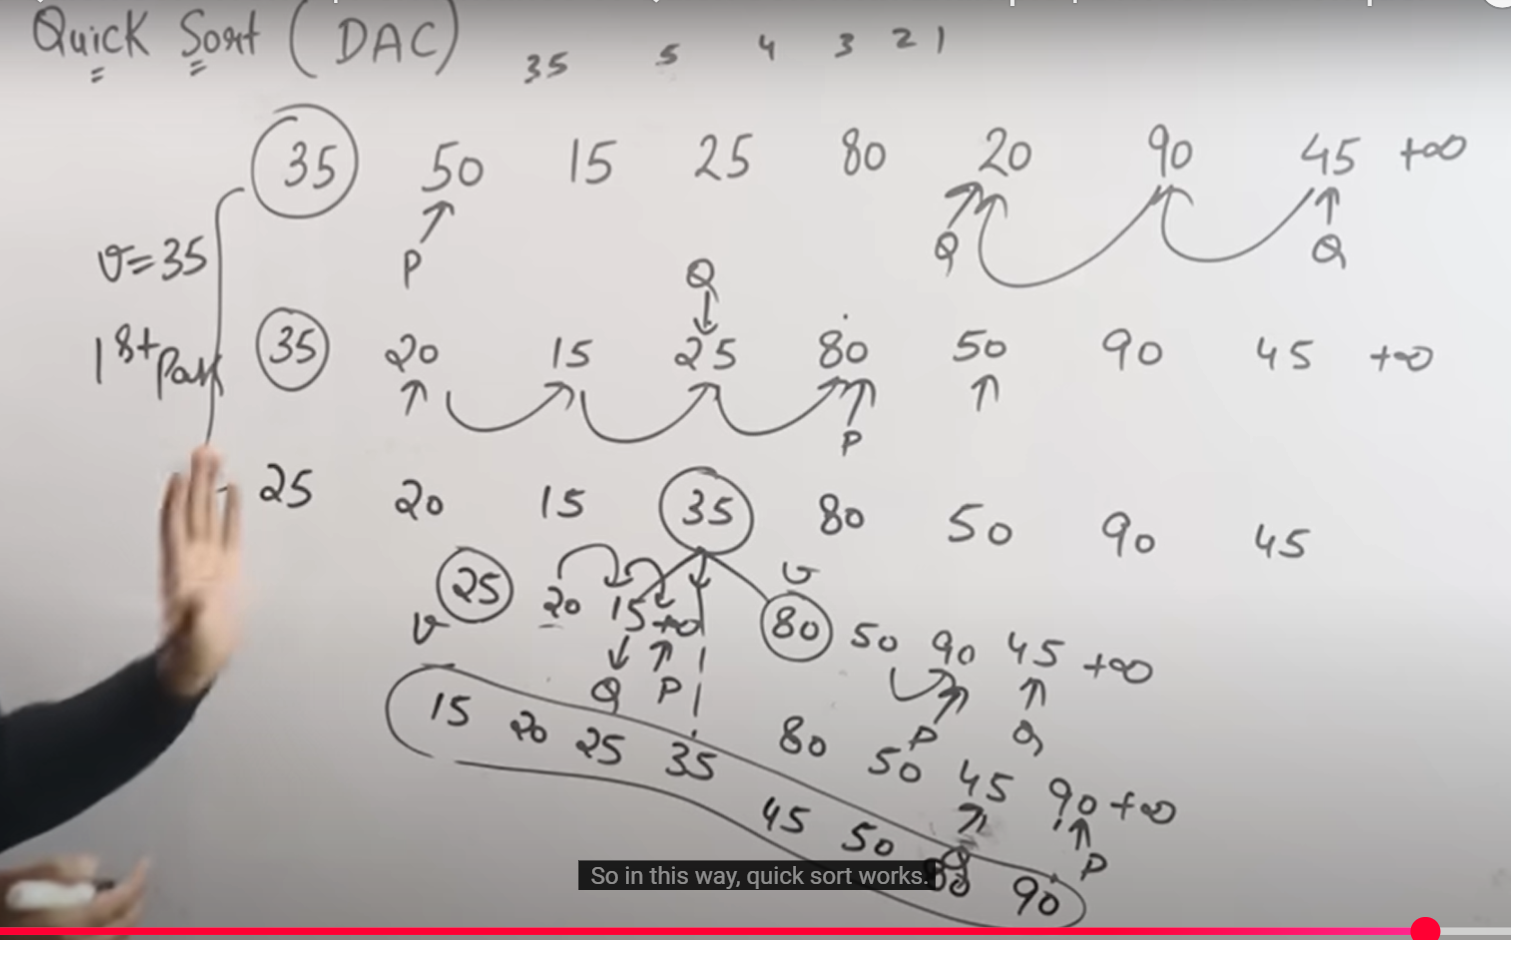 Quick Sort (DAC)
35 5 4 3 2 1
35 50 15 25 80 20 90 45 +∞
P Q Q
v=35
Q
1st Pass
35 20 15 25 80 50 90 45 +∞
P
25 20 15 35 80 50 90 45
v
25 20 15 +∞ 80 50 90 45 +∞
v
Q P P Q
80 50 45 90 +∞
Q P
15 20 25 35 45 50 80 90
So in this way, quick sort works.